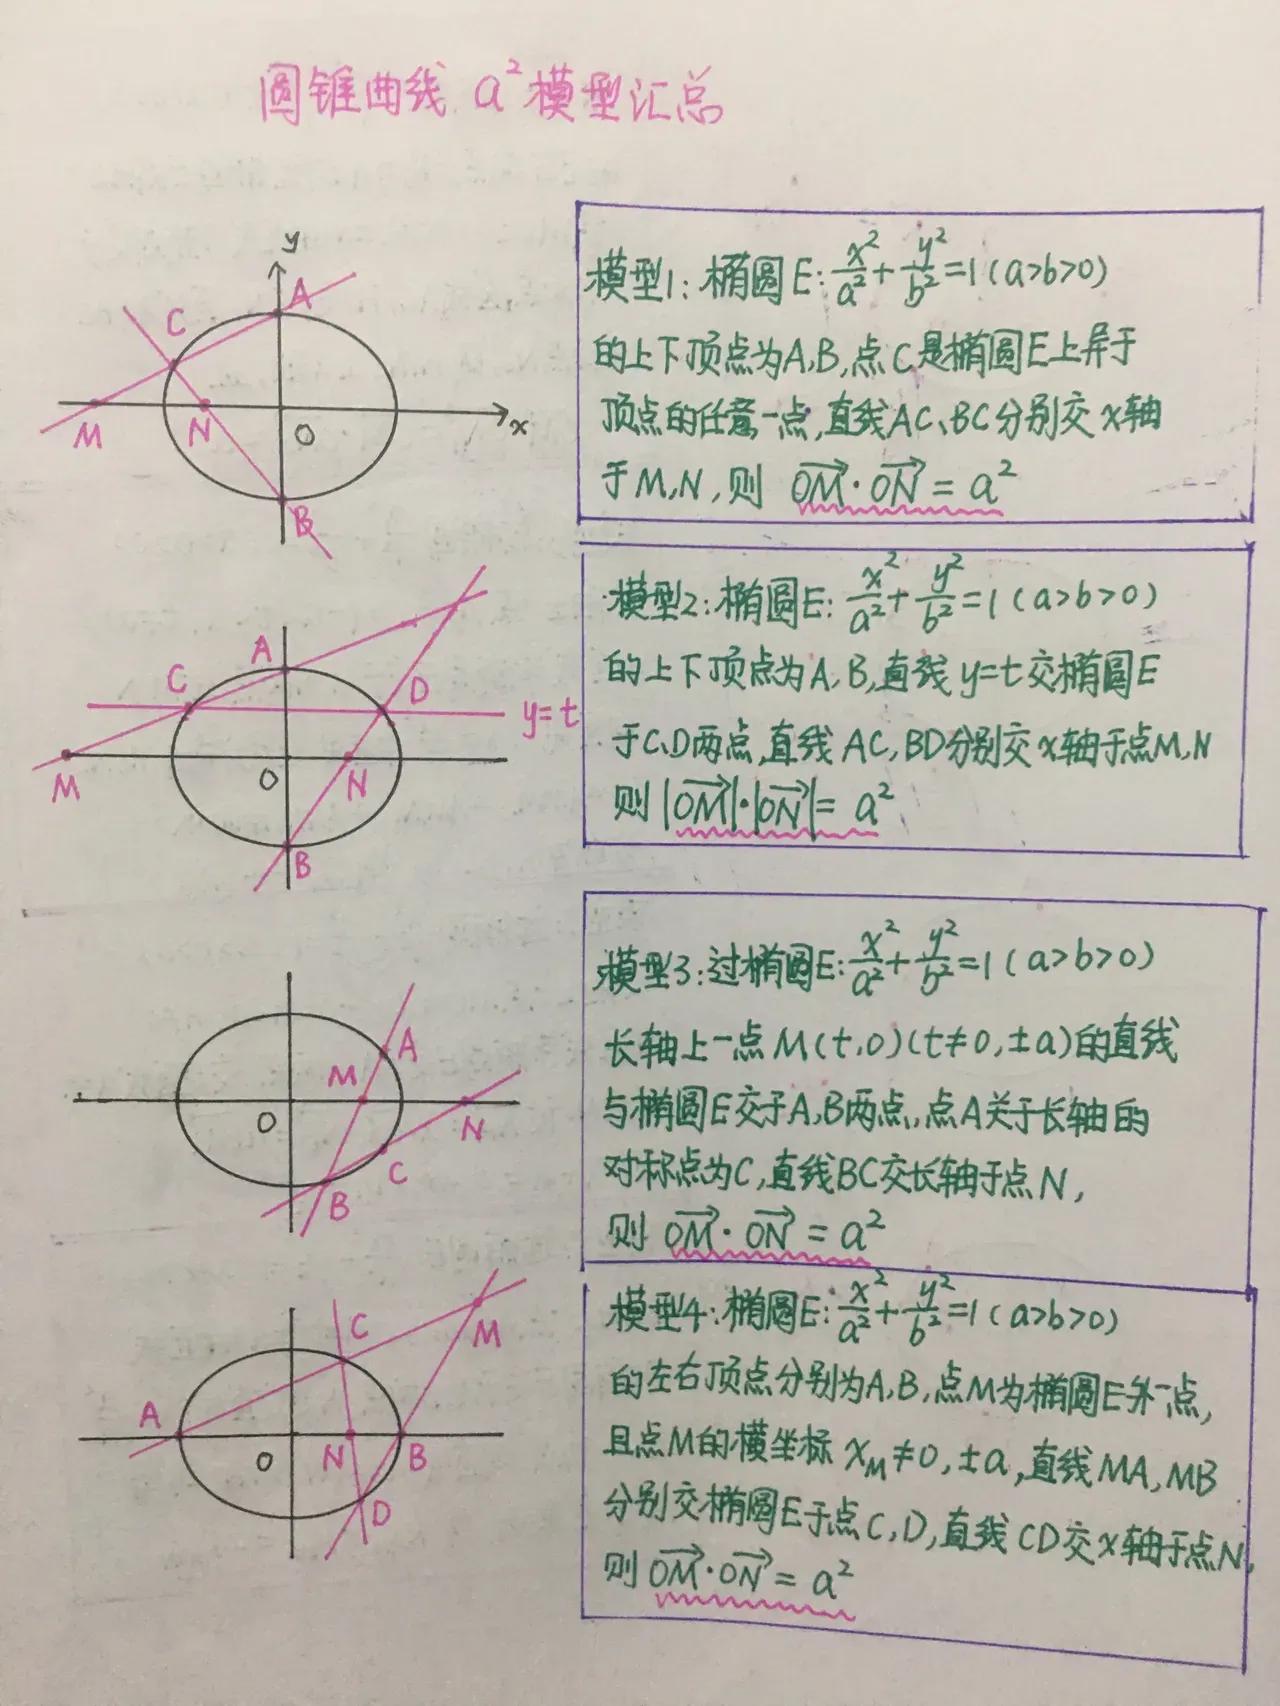 圆锥曲线 a²模型汇总
y
A
C
M
N
O
x
B
模型1: 椭圆E: x²/a² + y²/b² = 1 (a>b>0)
的上下顶点为A,B,点C是椭圆E上异于
顶点的任意一点,直线AC、BC分别交x轴
于M,N,则 OM→·ON→ = a²
A
C
D
y=t
M
O
N
B
模型2: 椭圆E: x²/a² + y²/b² = 1 (a>b>0)
的上下顶点为A,B,直线y=t交椭圆E
于C、D两点,直线AC,BD分别交x轴于点M,N
则 |OM→|·|ON→| = a²
A
M
O
N
C
B
模型3: 过椭圆E: x²/a² + y²/b² = 1 (a>b>0)
长轴上一点M(t,0)(t≠0,±a)的直线
与椭圆E交于A,B两点,点A关于长轴的
对称点为C,直线BC交长轴于点N,
则 OM→·ON→ = a²
C
M
A
O
N
B
D
模型4: 椭圆E: x²/a² + y²/b² = 1 (a>b>0)
的左右顶点分别为A,B,点M为椭圆E外一点,
且点M的横坐标 x_M≠0,±a,直线MA,MB
分别交椭圆E于点C,D,直线CD交x轴于点N,
则 OM→·ON→ = a²